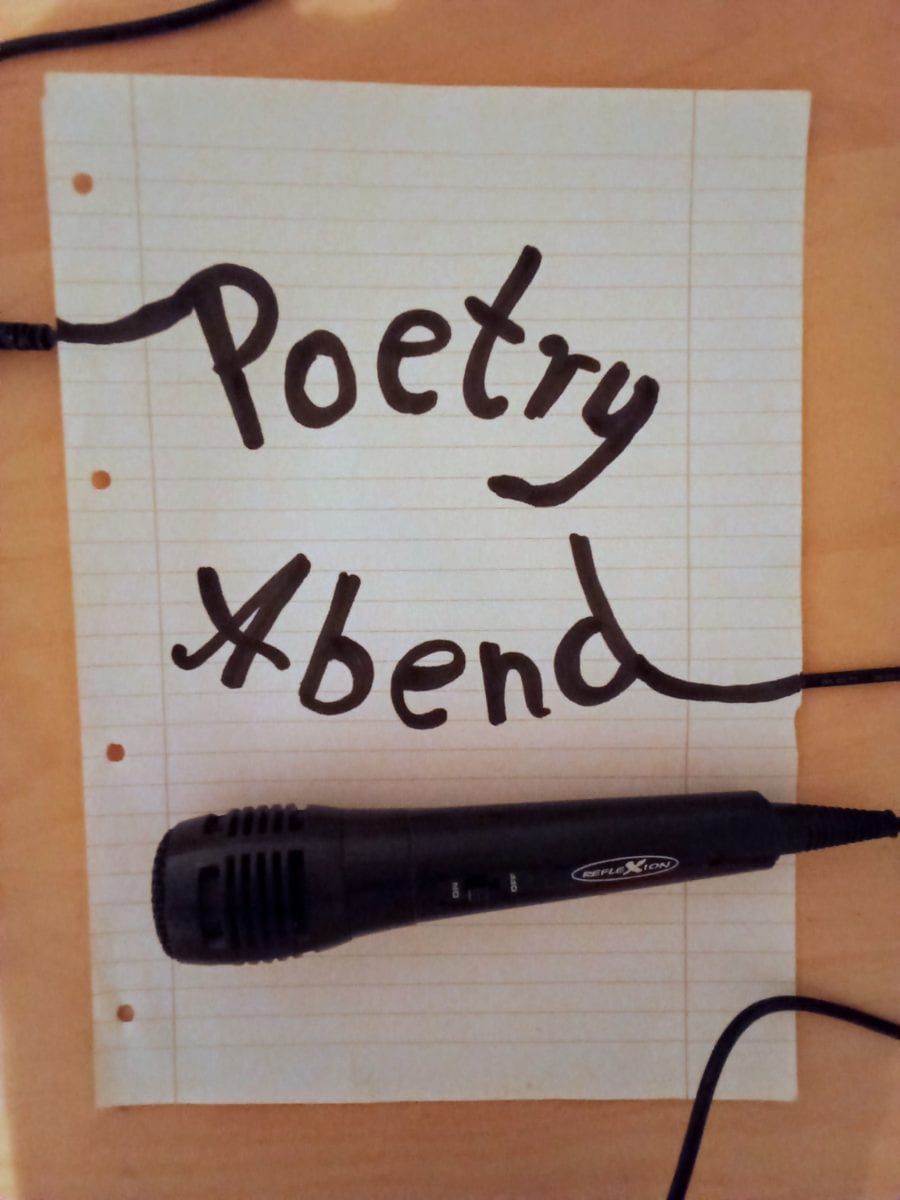 Poetry
Abend
ON OFF REFLEXION